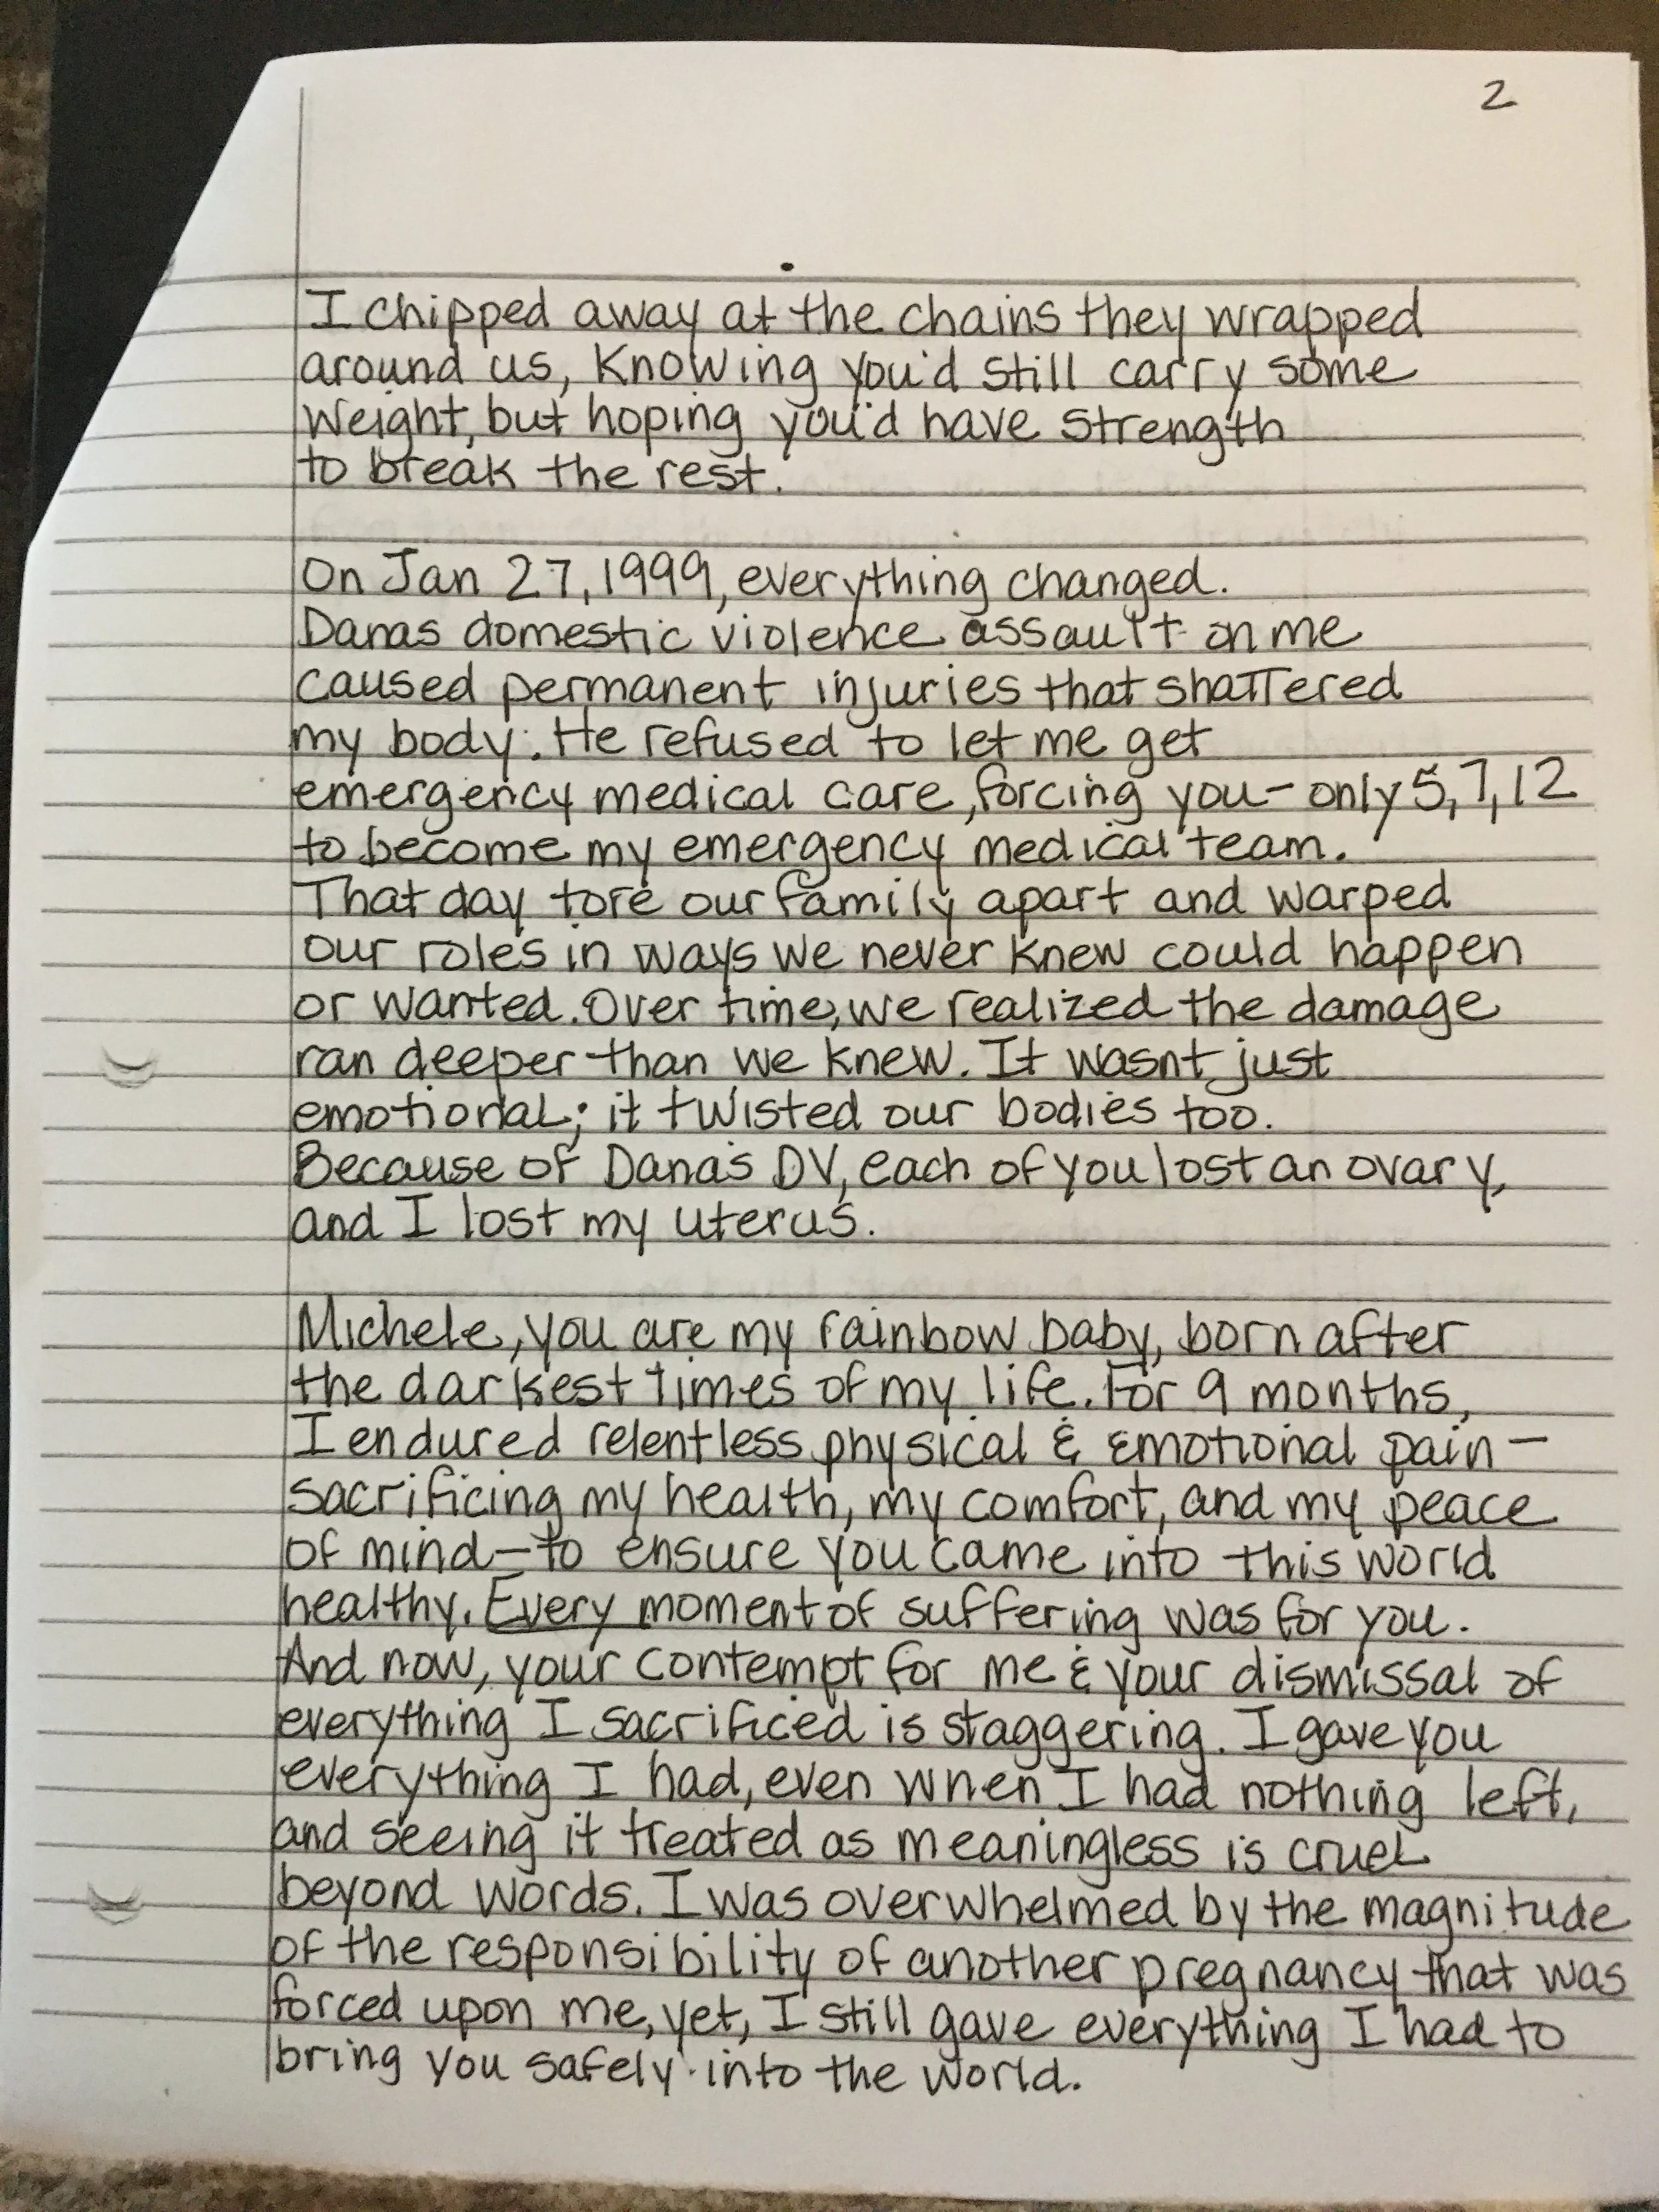 2
I chipped away at the chains they wrapped
around us, knowing you'd still carry some
weight, but hoping you'd have strength
to break the rest.
On Jan 27, 1999, everything changed.
Danas domestic violence assault on me
caused permanent injuries that shattered
my body. He refused to let me get
emergency medical care, forcing you - only 5, 7, 12
to become my emergency medical team.
That day tore our family apart and warped
our roles in ways we never knew could happen
or wanted. Over time, we realized the damage
ran deeper than we knew. It wasnt just
emotional; it twisted our bodies too.
Because of Dana's DV, each of you lost an ovary,
and I lost my uterus.
Michele, you are my rainbow baby, born after
the darkest times of my life. For 9 months,
I endured relentless physical & emotional pain -
sacrificing my health, my comfort, and my peace
of mind - to ensure you came into this world
healthy. Every moment of suffering was for you.
And now, your contempt for me & your dismissal of
everything I sacrificed is staggering. I gave you
everything I had, even when I had nothing left,
and seeing it treated as meaningless is cruel
beyond words. I was overwhelmed by the magnitude
of the responsibility of another pregnancy that was
forced upon me, yet, I still gave everything I had to
bring you safely into the world.